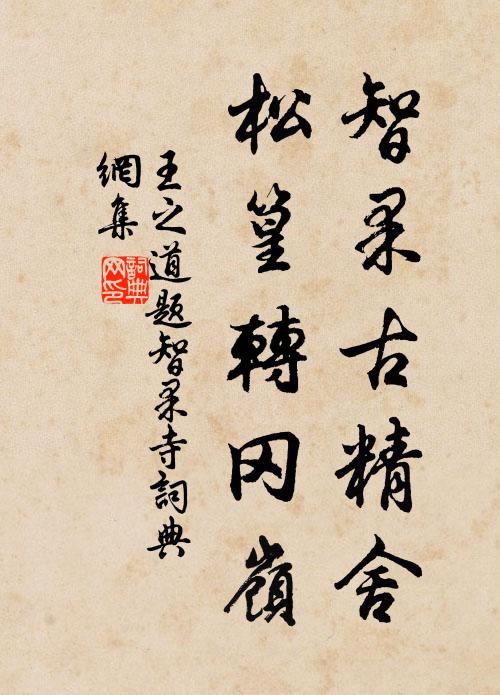 智果古精舍
松篁轉冈嶺
王之道题智果寺詞典
網集
詞典
网印